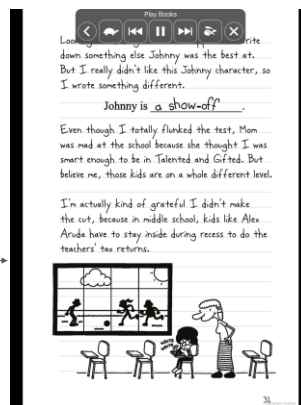 Play Books
down something else Johnny was the best at.
But I really didn't like this Johnny character, so
I wrote something different.
Johnny is a show-off.
Even though I totally flunked the test, Mom
was mad at the school because she thought I was
smart enough to be in Talented and Gifted. But
believe me, those kids are on a whole different level.
I'm actually kind of grateful I didn't make
the cut, because in middle school, kids like Alex
Aruda have to stay inside during recess to do the
teachers' tax returns.
31